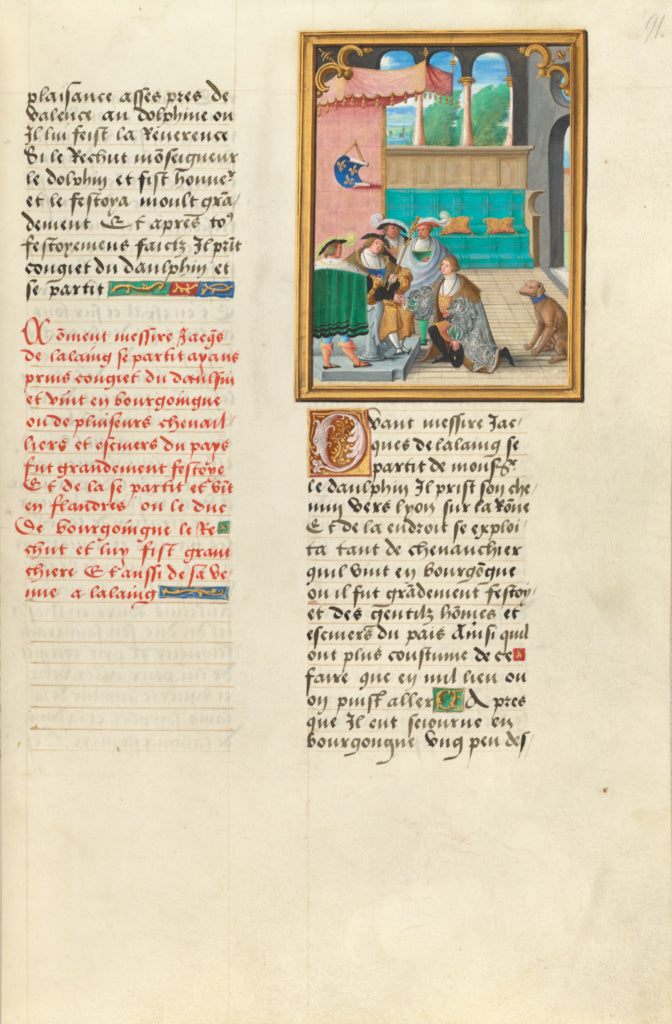 91.
plaisance asses pres de
valence au dolphine ou
Il luy feist la Reverence
Si le Rechut mõseigneur
le dolphin et fist hõnneᵣ
et le festoya moult grã/
dement Et apres toᵘ
festoyemens faictz Il prĩt
cougiet du daulphin et
se partit
Cõment messire Jacq̃s
de lalaing se partit ayans
prins cougiet du daulfin
et vint en bourgoingne
ou de pluiseurs cheual/
liers et escuiers du pays
fut grandement festoye
Et de la se partit et vĩt
en flandres ou le duc
de bourgoingne le Re
chut et luy fist grant
chiere Et aussi de sa ve
nue a lalaing
Quant messire Jac/
ques de lalaing se
partit de monsgr
le daulphin Il prist son che
min vers lyon sur la Rõne
Et de la endroit se exploi/
ta tant de cheuauchier
quil vint en bourgõgne
ou il fut grãdement festoy/
et des gentilz hõmes et
escuiers du pais Ainsi quil
ont plus coustume de ce
faire que en nul lieu ou
on puist aller Et A pres
que Il eut seiourne en
bourgongne vng peu des/